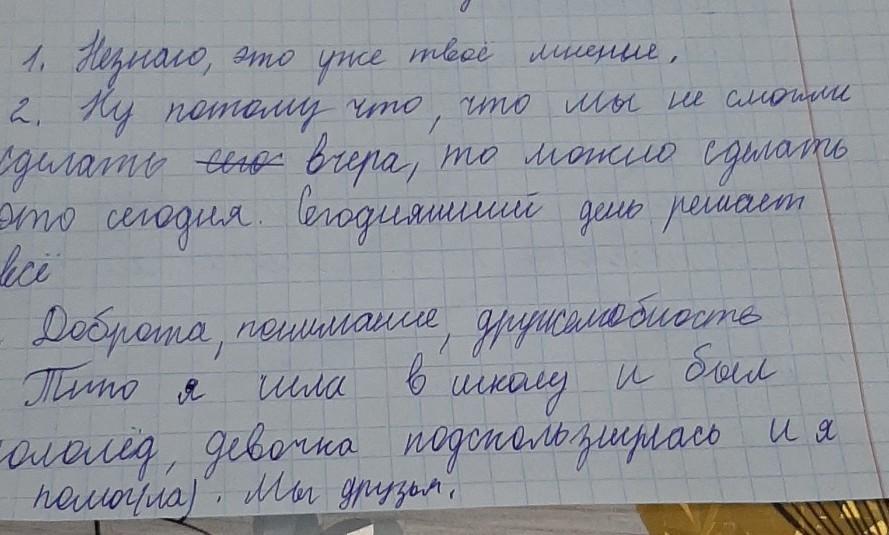 1. Незнаю, это уже твоё мнение.
2. Ну потому что, что мы не смогли
сделать сего вчера, то можно сделать
это сегодня. Сегодняшний день решает
всё
Доброта, понимание, дружелюбность
Типо я шла в школу и был
ололёд, девочка подскользнулась и я
помог(ла). Мы друзья.